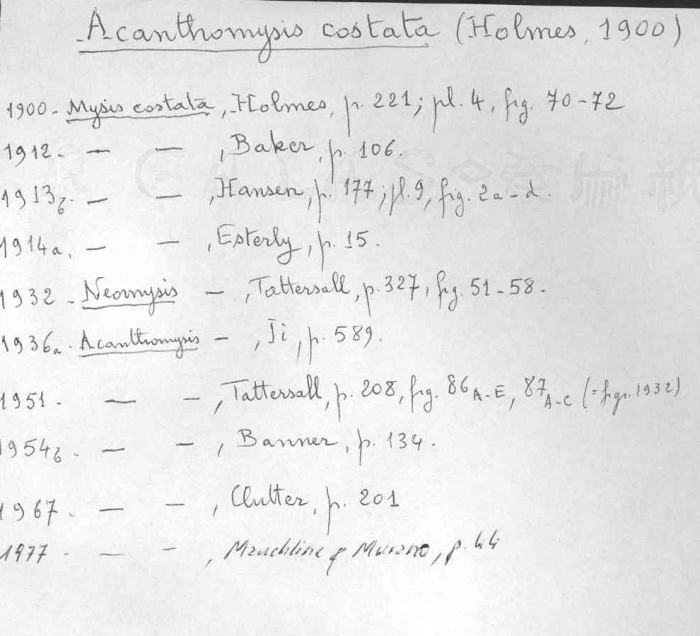 Acanthomysis costata (Holmes, 1900)
1900 - Mysis costata, Holmes, p. 221; pl. 4, fig. 70-72
1912 - — — , Baker, p. 106.
1913b. — — , Hansen, p. 177; pl. 9, fig. 2a-d.
1914a. — — , Esterly, p. 15.
1932 - Neomysis — , Tattersall, p. 327, fig. 51-58.
1936a. Acanthomysis — , Ii, p. 589.
1951. — — , Tattersall, p. 208, fig. 86A-E, 87A-C (= figs. 1932)
1954b. — — , Banner, p. 134.
1967. — — , Clutter, p. 201
1977 - — — , Mauchline & Murano, p. 44